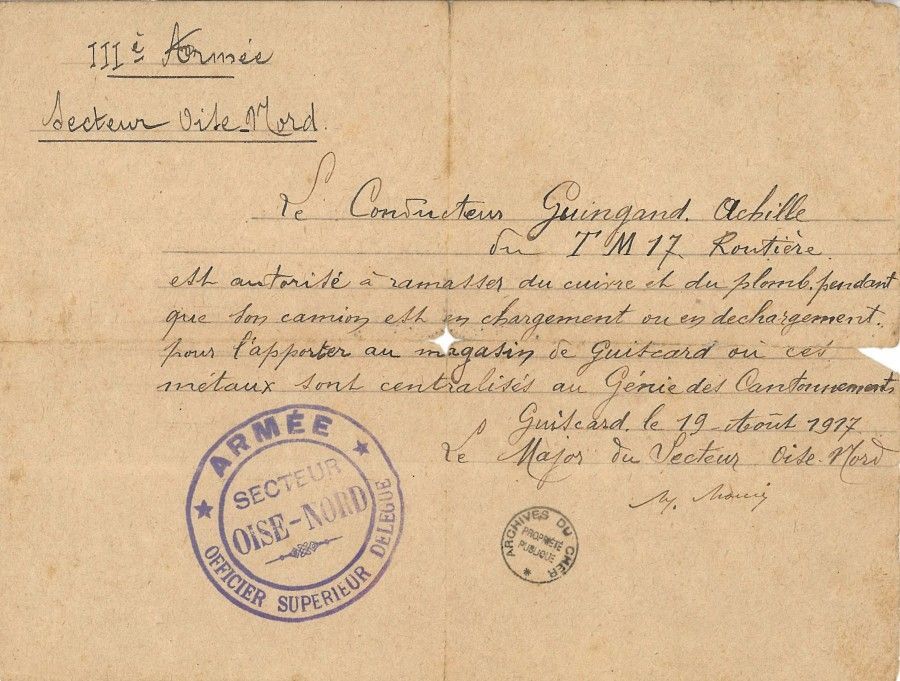 IIIè Armée
Secteur Oise-Nord.
Le Conducteur Guingand. Achille
du T M 17. Routière.
est autorisé à ramasser du cuivre et du plomb. pendant
que son camion est en chargement ou en dechargement.
pour l'apporter au magasin de Guiscard où ces
métaux sont centralisés au Génie des Cantonnements
Guiscard. le 19 Août 1917
Le Major du Secteur Oise-Nord
ARMÉE
SECTEUR
OISE-NORD
OFFICIER SUPERIEUR DELEGUÉ
ARCHIVES DU CHER
PROPRIÉTÉ
PUBLIQUE